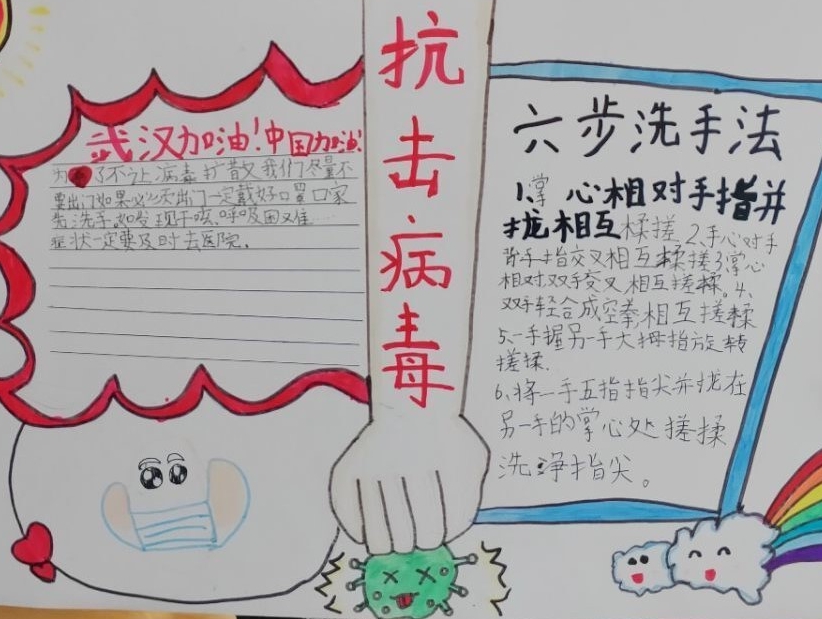 抗击病毒
武汉加油!中国加油!
为了不让病毒扩散我们尽量不
要出门如果必须出门一定戴好口罩回家
先洗手。如发现干咳、呼吸困难
症状一定要及时去医院。
六步洗手法
1、掌心相对手指并
拢相互揉搓2、手心对手
背手指交叉相互揉搓3、掌心
相对双手交叉相互搓揉。4、
双手轻合成空拳,相互搓揉
5、一手握另一手大拇指旋转
搓揉.
6、将一手五指指尖并拢在
另一手的掌心处搓揉
洗净指尖。